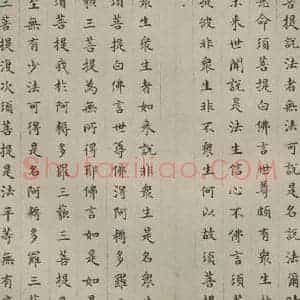 菩提說法者無法可說是名說法彌
慧命須菩提白佛言世尊頗有衆生
未來世聞說是法生信心不佛言須
提彼非衆生非不衆生何以故須菩
衆生衆生者如來說非衆生是名衆
菩提白佛言世尊佛得阿耨多羅
三藐三菩提為無所得耶佛言如是如
須菩提我於阿耨多羅三藐三菩提
至無有少法可得是名阿耨多羅三
三菩提復次須菩提是法平等無有
Shufaziliao.COM